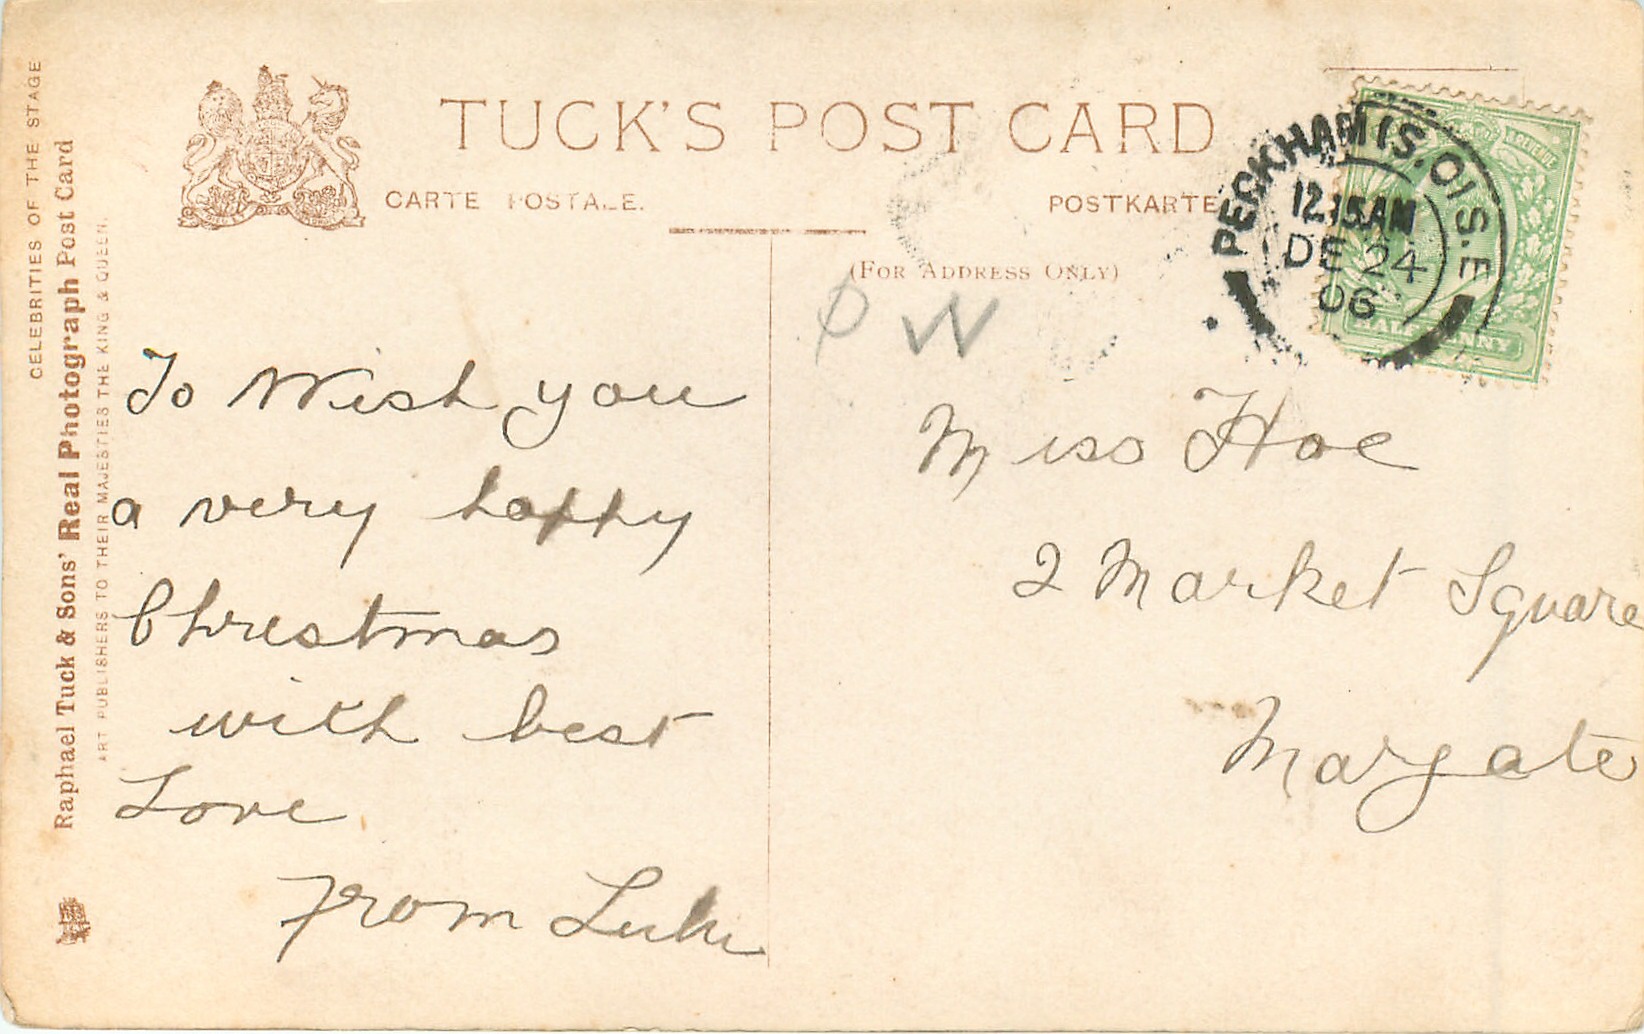 TUCK'S POST CARD
CARTE POSTALE.
POSTKARTE
(FOR ADDRESS ONLY)
CELEBRITIES OF THE STAGE
Raphael Tuck & Sons' Real Photograph Post Card
ART PUBLISHERS TO THEIR MAJESTIES THE KING & QUEEN.
PECKHAM (S.O) S.E
12.15AM
DE 24
06
REVENUE
HALFPENNY
W
To Wish you
a very happy
Christmas
with best
Love
from
Miss Hoe
2 Market Square
Margate